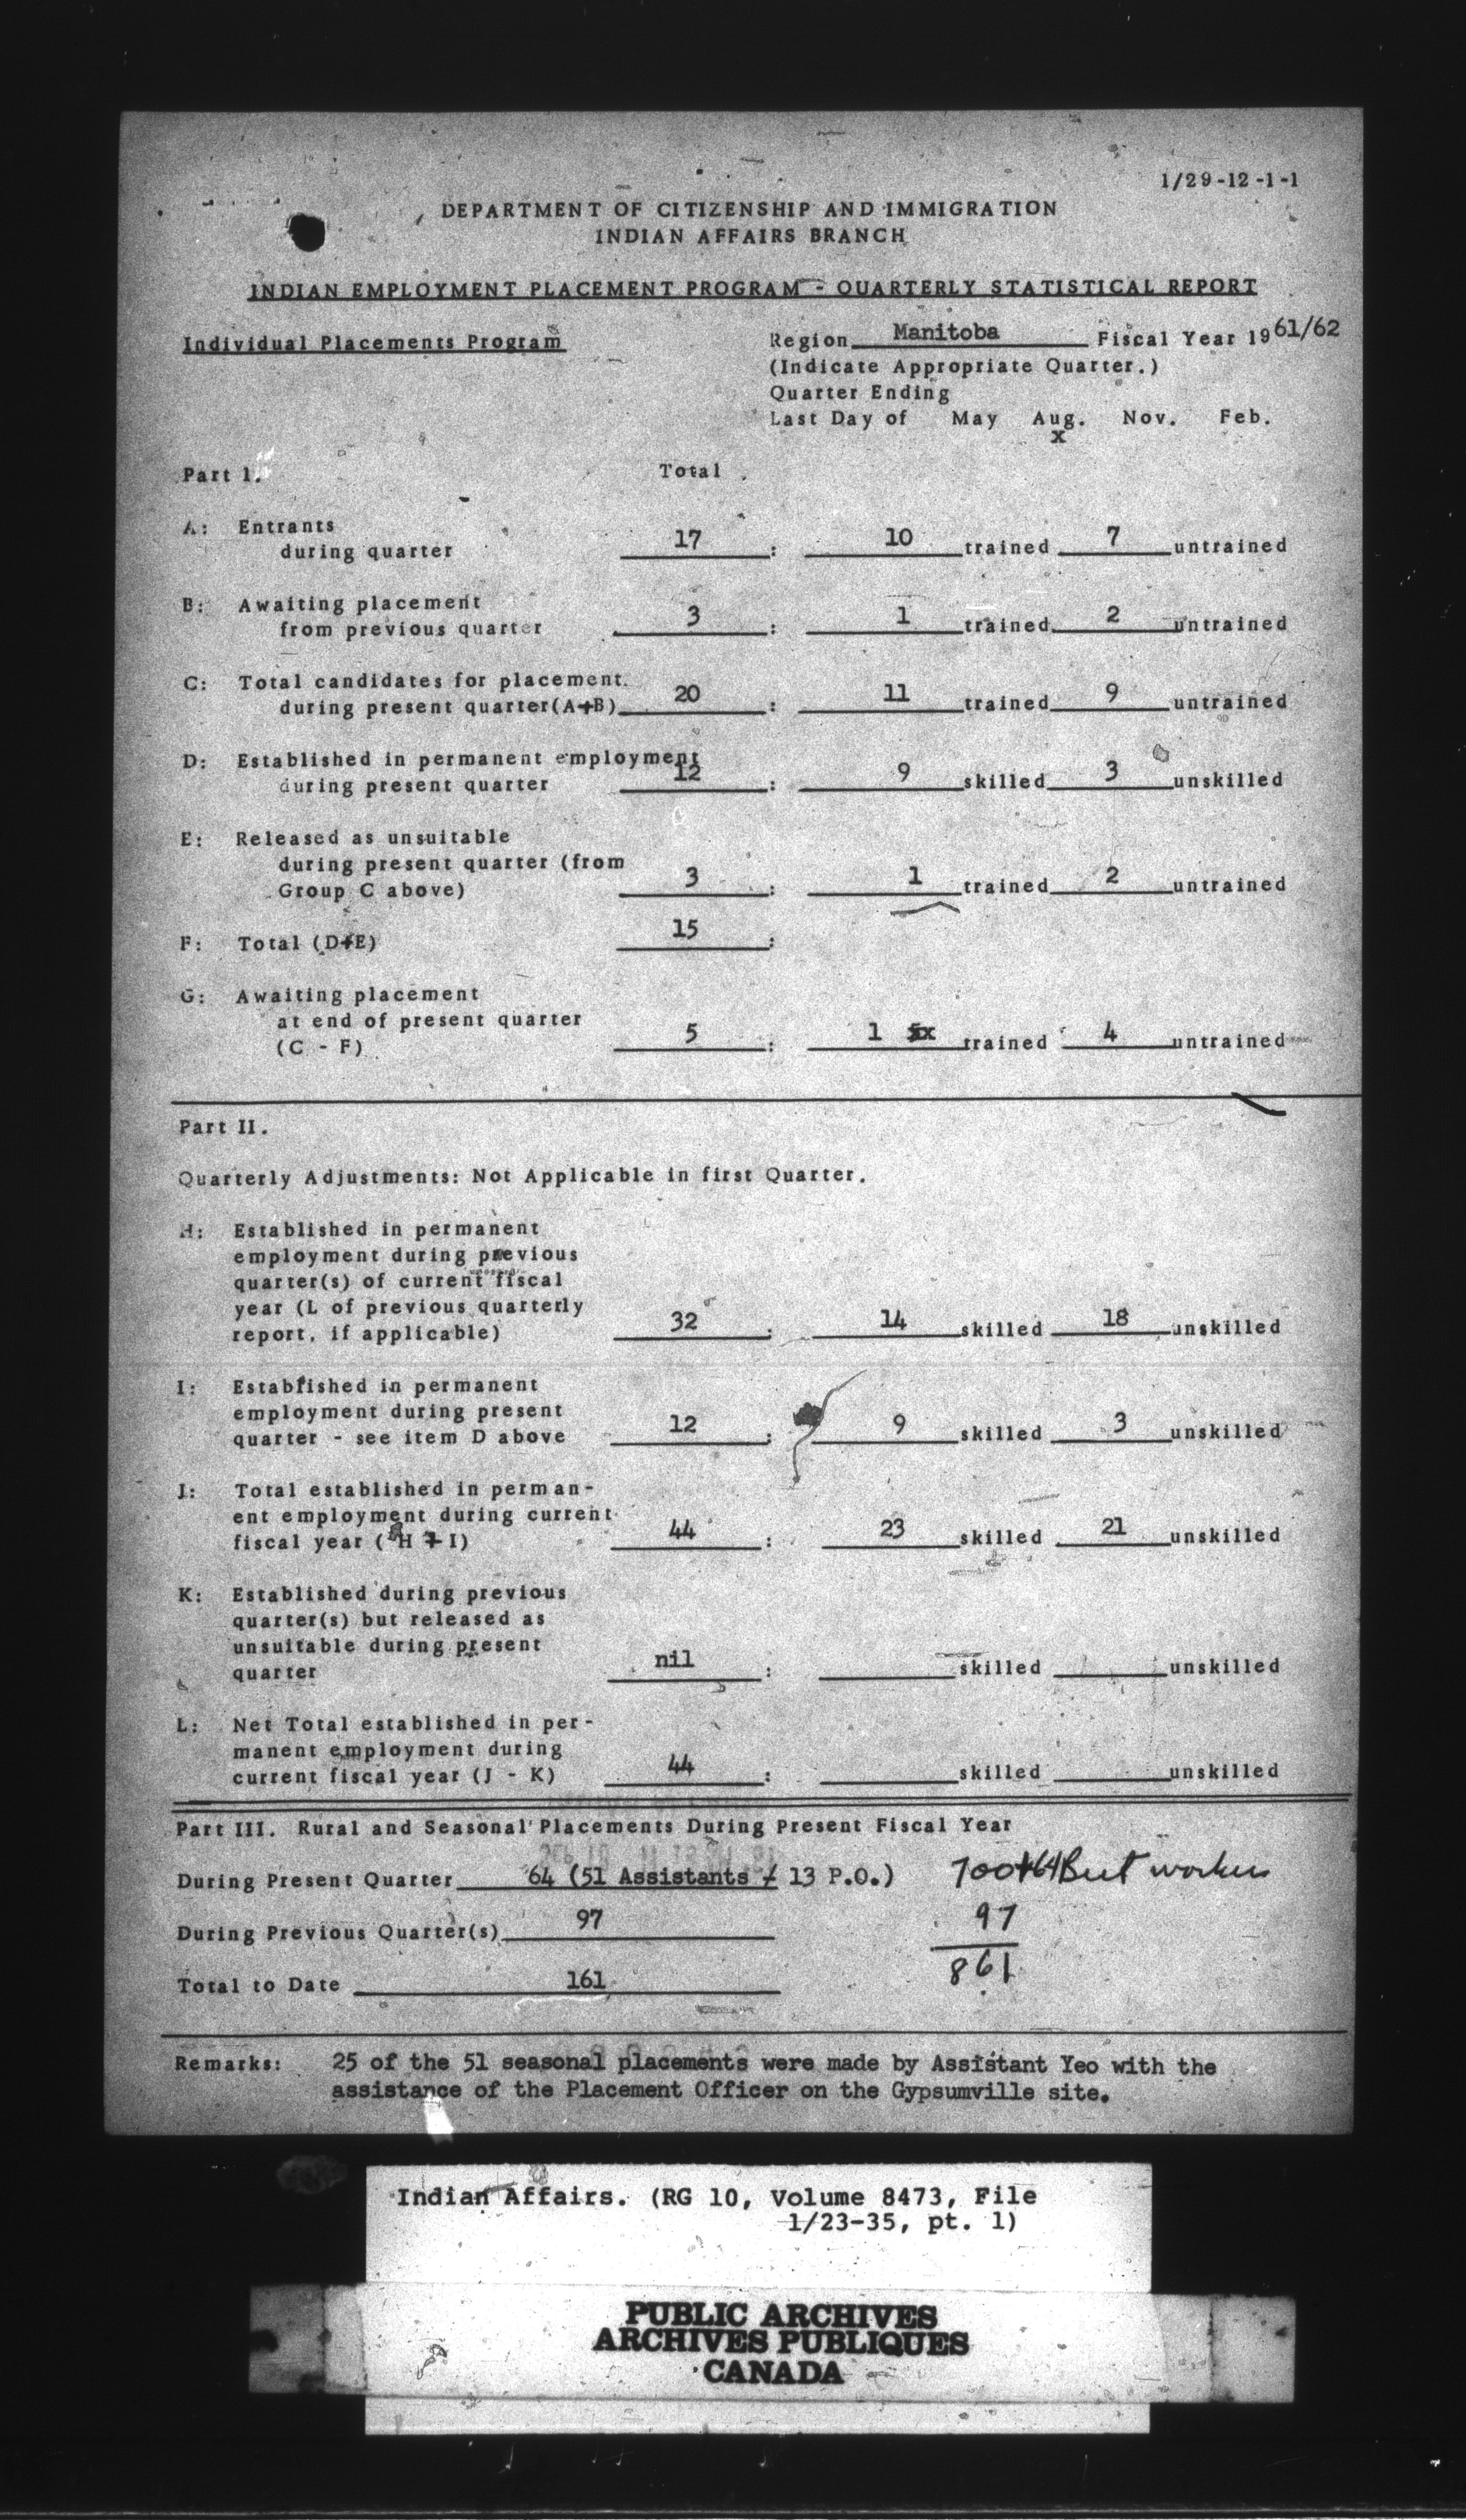 1/29-12-1-1
DEPARTMENT OF CITIZENSHIP AND IMMIGRATION
INDIAN AFFAIRS BRANCH
INDIAN EMPLOYMENT PLACEMENT PROGRAM - QUARTERLY STATISTICAL REPORT
Individual Placements Program
Region Manitoba Fiscal Year 1961/62
(Indicate Appropriate Quarter.)
Quarter Ending
Last Day of May Aug. Nov. Feb.
x
Part 1. Total
A: Entrants
during quarter 17 : 10 trained 7 untrained
B: Awaiting placement
from previous quarter 3 : 1 trained 2 untrained
C: Total candidates for placement
during present quarter(A+B) 20 : 11 trained 9 untrained
D: Established in permanent employment
during present quarter 12 : 9 skilled 3 unskilled
E: Released as unsuitable
during present quarter (from
Group C above) 3 : 1 trained 2 untrained
F: Total (D+E) 15 :
G: Awaiting placement
at end of present quarter
(C - F) 5 : 1 trained 4 untrained
Part II.
Quarterly Adjustments: Not Applicable in first Quarter.
H: Established in permanent
employment during previous
quarter(s) of current fiscal
year (L of previous quarterly
report, if applicable) 32 : 14 skilled 18 unskilled
I: Established in permanent
employment during present
quarter - see item D above 12 : 9 skilled 3 unskilled
J: Total established in perman-
ent employment during current
fiscal year (H + I) 44 : 23 skilled 21 unskilled
K: Established during previous
quarter(s) but released as
unsuitable during present
quarter nil : skilled unskilled
L: Net Total established in per-
manent employment during
current fiscal year (J - K) 44 : skilled unskilled
Part III. Rural and Seasonal Placements During Present Fiscal Year
During Present Quarter 64 (51 Assistants / 13 P.O.) 700+64 Beet workers
During Previous Quarter(s) 97 97
Total to Date 161 861
Remarks: 25 of the 51 seasonal placements were made by Assistant Yeo with the
assistance of the Placement Officer on the Gypsumville site.
Indian Affairs. (RG 10, Volume 8473, File
1/23-35, pt. 1)
PUBLIC ARCHIVES
ARCHIVES PUBLIQUES
CANADA